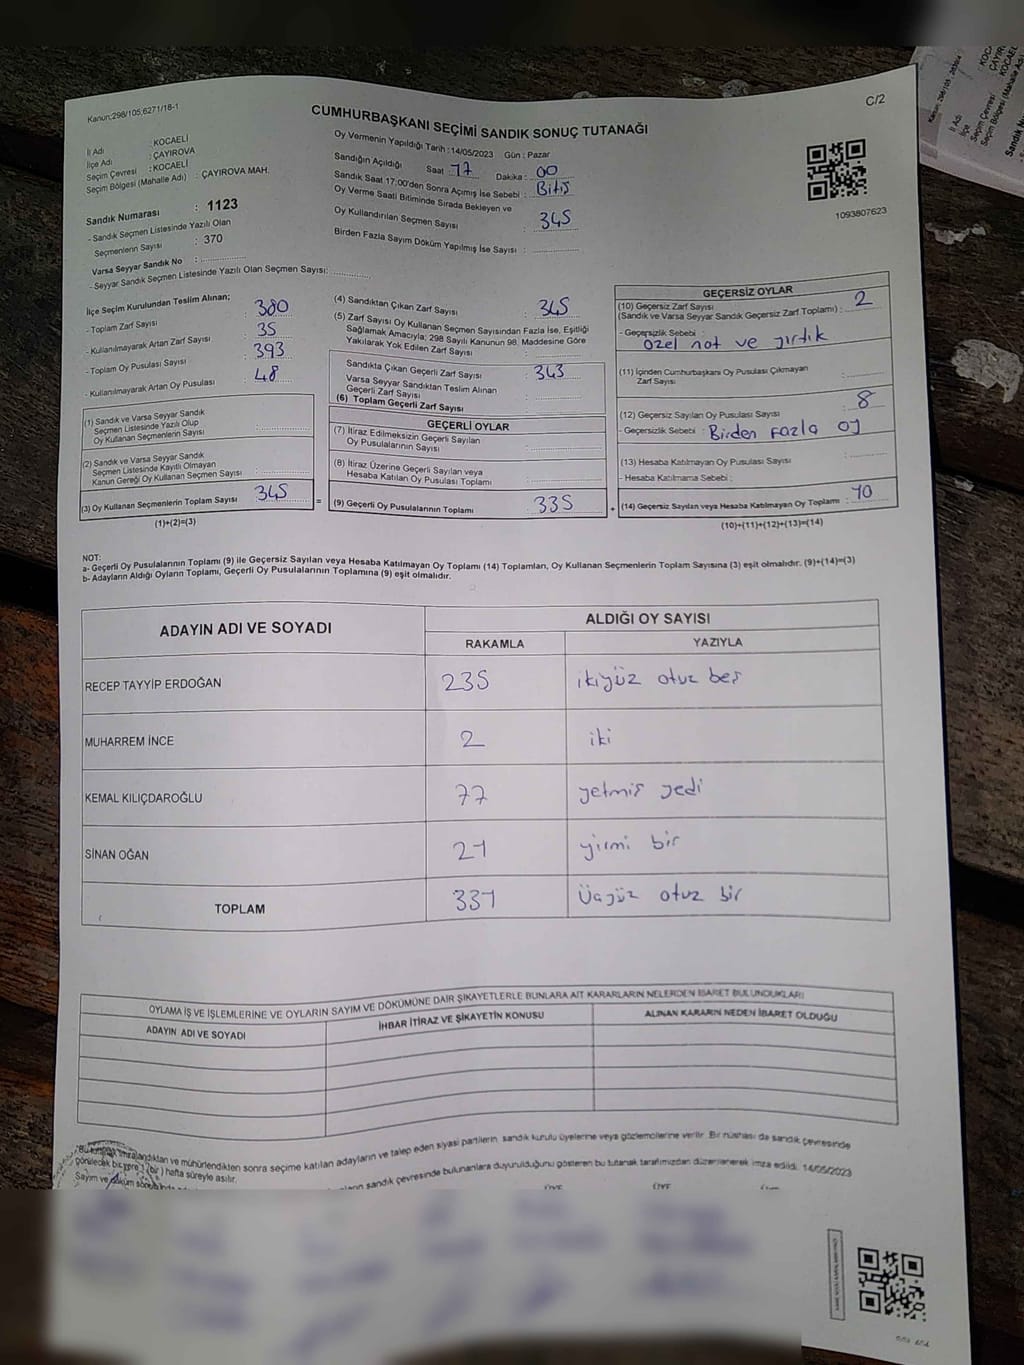 Kanun;298/105;6271/18-1
C/2
CUMHURBAŞKANI SEÇİMİ SANDIK SONUÇ TUTANAĞI
İl Adı : KOCAELİ
İlçe Adı : ÇAYIROVA
Seçim Çevresi : KOCAELİ
Seçim Bölgesi (Mahalle Adı) : ÇAYIROVA MAH.
Sandık Numarası : 1123
- Sandık Seçmen Listesinde Yazılı Olan
Seçmenlerin Sayısı : 370
Varsa Seyyar Sandık No :
- Seyyar Sandık Seçmen Listesinde Yazılı Olan Seçmen Sayısı:
Oy Vermenin Yapıldığı Tarih :14/05/2023 Gün : Pazar
Sandığın Açıldığı Saat 17 Dakika: 00
Sandık Saat 17:00'den Sonra Açımış İse Sebebi : Bitiş
Oy Verme Saati Bitiminde Sırada Bekleyen ve
Oy Kullandırılan Seçmen Sayısı : 345
Birden Fazla Sayım Döküm Yapılmış İse Sayısı :
1093807623
İlçe Seçim Kurulundan Teslim Alınan;
- Toplam Zarf Sayısı 380
- Kullanılmayarak Artan Zarf Sayısı 35
- Toplam Oy Pusulası Sayısı 393
- Kullanılmayarak Artan Oy Pusulası 48
(1) Sandık ve Varsa Seyyar Sandık
Seçmen Listesinde Yazılı Olup
Oy Kullanan Seçmenlerin Sayısı
(2) Sandık ve Varsa Seyyar Sandık
Seçmen Listesinde Kayıtlı Olmayan
Kanun Gereği Oy Kullanan Seçmen Sayısı
(3) Oy Kullanan Seçmenlerin Toplam Sayısı 345 =
(1)+(2)=(3)
(4) Sandıktan Çıkan Zarf Sayısı : 345
(5) Zarf Sayısı Oy Kullanan Seçmen Sayısından Fazla İse, Eşitliği
Sağlamak Amacıyla; 298 Sayılı Kanunun 98. Maddesine Göre
Yakılarak Yok Edilen Zarf Sayısı :
Sandıkta Çıkan Geçerli Zarf Sayısı : 343
Varsa Seyyar Sandıktan Teslim Alınan
Geçerli Zarf Sayısı
(6) Toplam Geçerli Zarf Sayısı
GEÇERLİ OYLAR
(7) İtiraz Edilmeksizin Geçerli Sayılan
Oy Pusulalarının Sayısı
(8) İtiraz Üzerine Geçerli Sayılan veya
Hesaba Katılan Oy Pusulası Toplamı
(9) Geçerli Oy Pusulalarının Toplamı : 335 +
GEÇERSİZ OYLAR
(10) Geçersiz Zarf Sayısı
(Sandık ve Varsa Seyyar Sandık Geçersiz Zarf Toplamı) : 2
- Geçersizlik Sebebi :
özel not ve yırtık
(11) İçinden Cumhurbaşkanı Oy Pusulası Çıkmayan
Zarf Sayısı :
(12) Geçersiz Sayılan Oy Pusulası Sayısı : 8
- Geçersizlik Sebebi : Birden Fazla oy
(13) Hesaba Katılmayan Oy Pusulası Sayısı :
- Hesaba Katılmama Sebebi :
(14) Geçersiz Sayılan veya Hesaba Katılmayan Oy Toplamı : 10
(10)+(11)+(12)+(13)=(14)
NOT:
a- Geçerli Oy Pusulalarının Toplamı (9) ile Geçersiz Sayılan veya Hesaba Katılmayan Oy Toplamı (14) Toplamları, Oy Kullanan Seçmenlerin Toplam Sayısına (3) eşit olmalıdır. (9)+(14)=(3)
b- Adayların Aldığı Oyların Toplamı, Geçerli Oy Pusulalarının Toplamına (9) eşit olmalıdır.
ADAYIN ADI VE SOYADI
ALDIĞI OY SAYISI
RAKAMLA YAZIYLA
RECEP TAYYİP ERDOĞAN 235 ikiyüz otuz beş
MUHARREM İNCE 2 iki
KEMAL KILIÇDAROĞLU 77 yetmiş yedi
SİNAN OĞAN 21 yirmi bir
TOPLAM 331 Üçyüz otuz bir
OYLAMA İŞ VE İŞLEMLERİNE VE OYLARIN SAYIM VE DÖKÜMÜNE DAİR ŞİKAYETLERLE BUNLARA AİT KARARLARIN NELERDEN İBARET BULUNDUKLARI
ADAYIN ADI VE SOYADI İHBAR İTİRAZ VE ŞİKAYETİN KONUSU ALINAN KARARIN NEDEN İBARET OLDUĞU
imzalandıktan ve mühürlendikten sonra seçime katılan adayların ve talep eden siyasi partilerin, sandık kurulu üyelerine veya gözlemcilerine verilir. Bir nüshası da sandık çevresinde
görülecek bir yere 1 (bir) hafta süreyle asılır.
Sayım ve döküm sandık çevresinde bulunanlara duyurulduğunu gösteren bu tutanak tarafımızdan düzenlenerek imza edildi. 14/05/2023